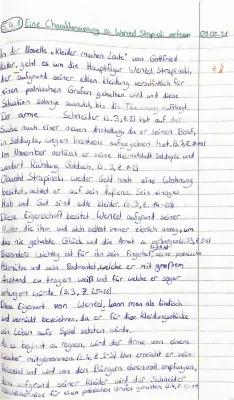 S.4.1 Eine Charakterisierung zu Wenzel Strapinski verfassen 09.05.
In der Novelle „Kleider machen Leute" von Gottfried
Keller, geht es um die Hauptfigur Wenzel Strapinski,
der aufgrund seiner edlen Kleidung versehntlich für
einen polnischen Grafen gehalten wird und diese
Situation solange ausnutzt, bis die auffliegt.
Der arme Schneider (S.3, Z.2) ist auf der
Suche nach einer neuen Anstellung da er seinen Beruf,
in Seldwyla, wegen Insolvenz aufgegeben hat. (S.3, Z.
Im November verlässt er seine Heimatstadt Seldwyla und
wandert Richtung Goldach. (S.3, Z.1-2)
Obwohl Strapinski weder Geld noch eine Wohnung
besitzt, achtet er auf sein Äußeres. Sein einziges
Hab und Gut sind edle Kleider. (S.3, Z.
Diese Eigenschaft besitzt Wenzel aufgrund seiner
Mutter die ihm und sich selbst immer
das nie gehabte Glück und die Armut zu
Besonders wichtig ist für ihn sein
Pelzmütze und sein Radmantel, welche er mit großem
Anstand zu tragen weiß und für welche er sogar
verhungern würde. (S.3, Z.25-26)
Diese Eigenart von Wenzel, kann man als kindisch
und verrückt bezeichnen, da er für diese Kleidungsstücke
sein Leben aufs Spiel setzten würde.
Als es beginnt zu regnen, wird der Arme von einem
Kutscher mitgenommen. (S.4, Z. Dann erreicht er sein
Reiseziel und wird von den Bürgern ehrenvoll empfangen,
denn aufgrund seiner Kleider wird der Schneider
für einen polnischen Grafen gehalten (S.4, Z.